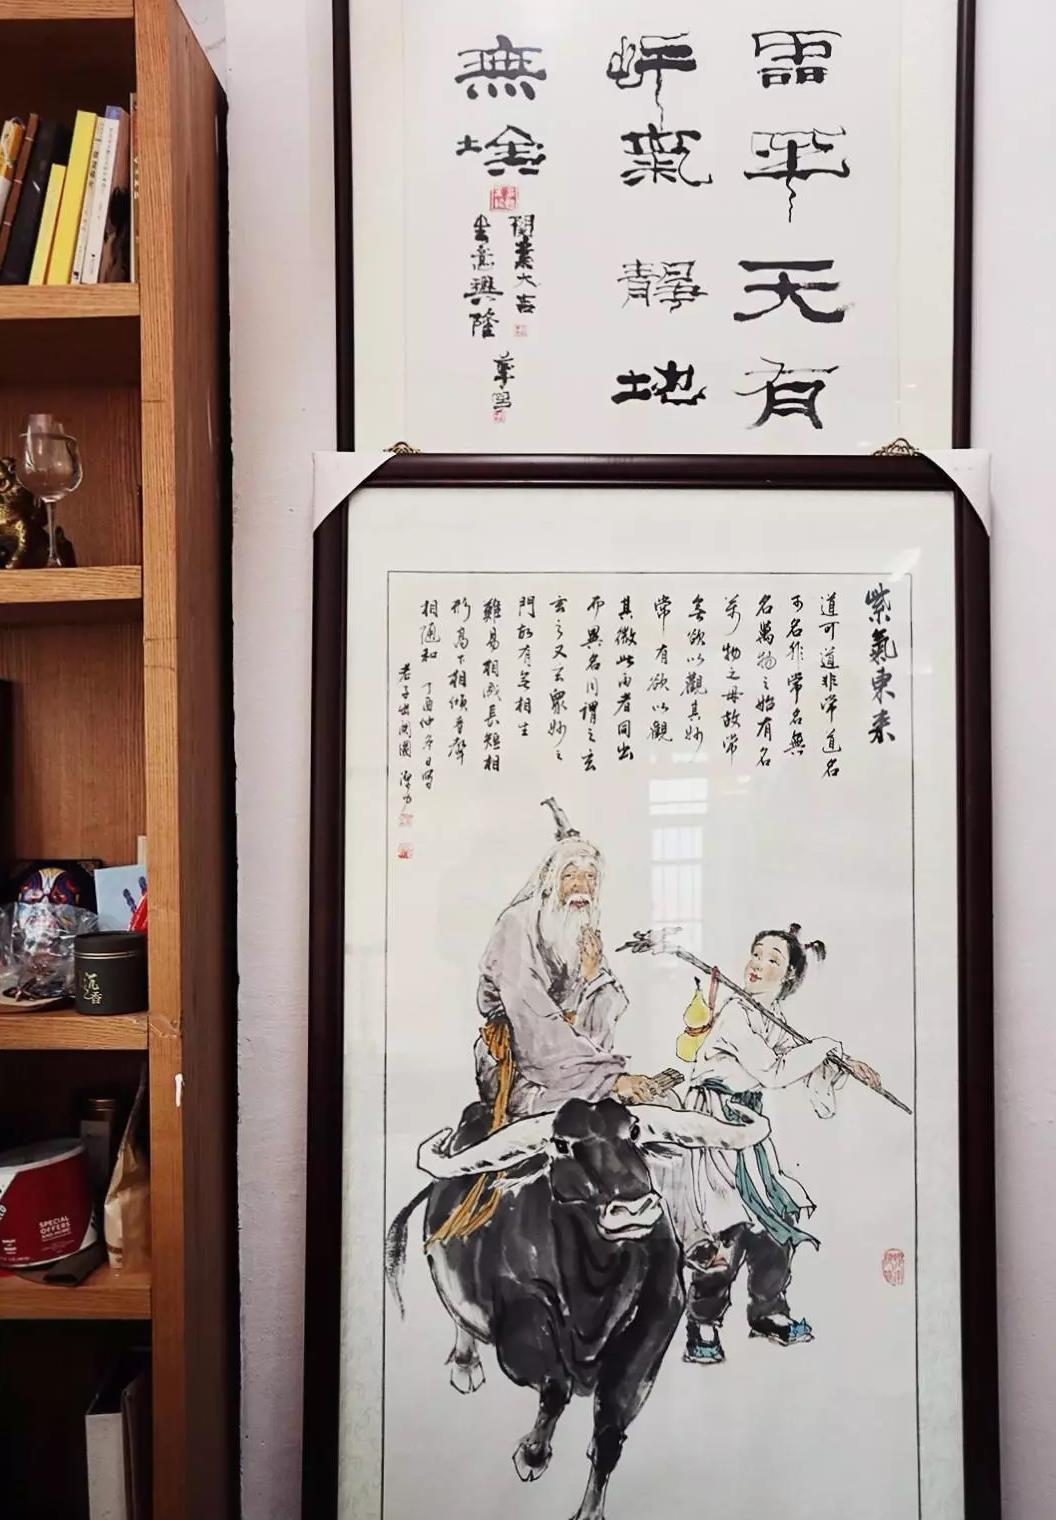 天有
氣靜地
無埃
開業大吉
生意興隆
紫氣東來
道可道非常道名
可名非常名無
名萬物之始有名
萬物之母故常
無欲以觀其妙
常有欲以觀
其徼此兩者同出
而異名同謂之玄
玄之又玄眾妙之
門故有無相生
難易相成長短相
形高下相傾音聲
相隨和 丁酉仲冬日寫
老子出關圖
沉香
SPECIAL
OFFERS